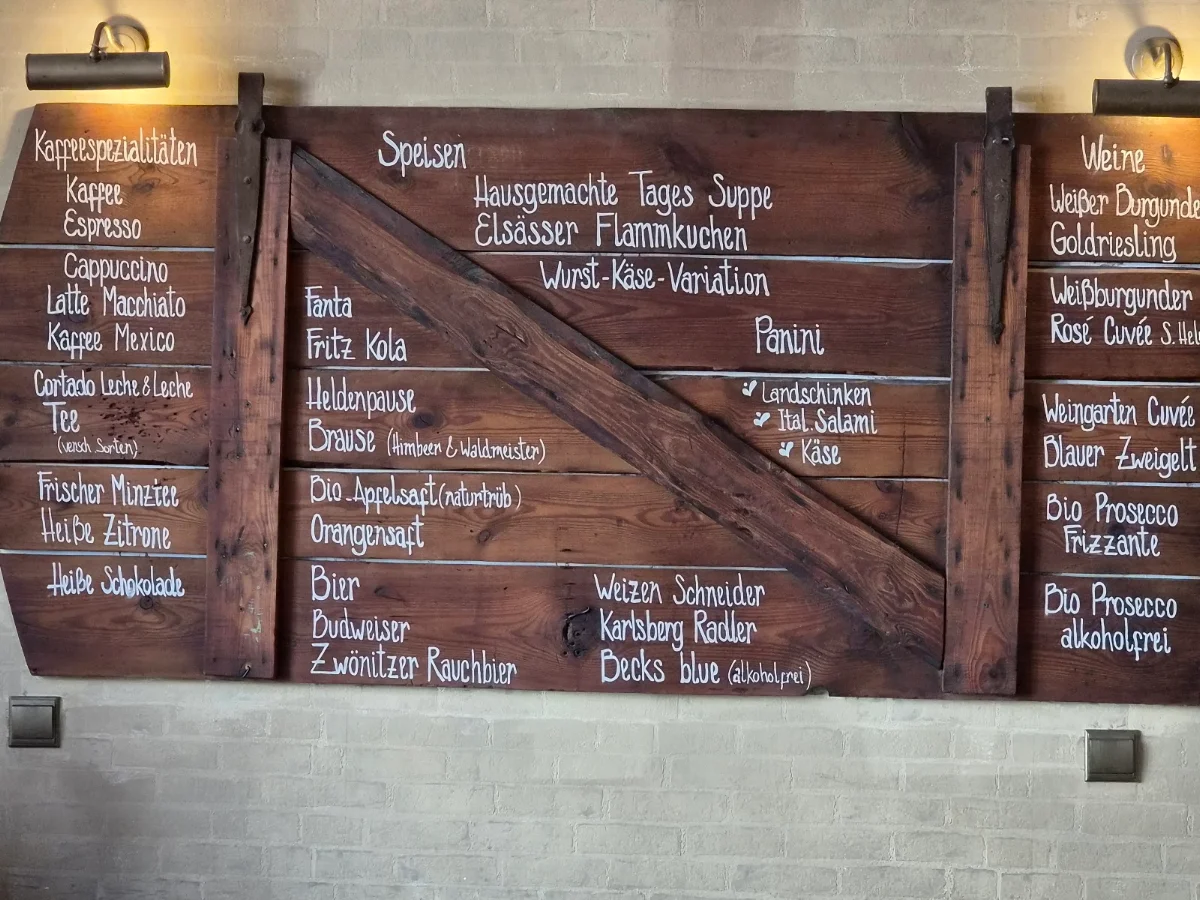 Kaffeespezialitäten
Kaffee
Espresso
Cappuccino
Latte Macchiato
Kaffee Mexico
Cortado Leche & Leche
Tee
(versch. Sorten)
Frischer Minztee
Heiße Zitrone
Heiße Schokolade
Speisen
Hausgemachte Tages Suppe
Elsässer Flammkuchen
Wurst-Käse-Variation
Panini
Landschinken
Ital. Salami
Käse
Fanta
Fritz Kola
Heldenpause
Brause (Himbeer & Waldmeister)
Bio-Apfelsaft (naturtrüb)
Orangensaft
Bier
Budweiser
Zwönitzer Rauchbier
Weizen Schneider
Karlsberg Radler
Becks blue (alkoholfrei)
Weine
Weißer Burgunde
Goldriesling
Weißburgunder
Rosé Cuvée S. Hel
Weingarten Cuvée
Blauer Zweigelt
Bio Prosecco
Frizzante
Bio Prosecco
alkoholfrei